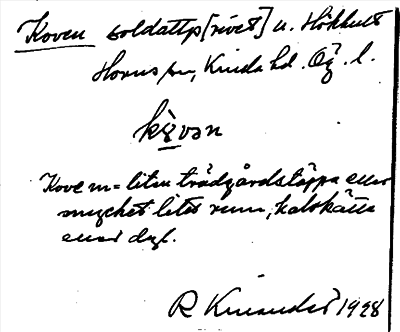 Koven soldattp[rivet] u. Hökhult
Horns sn, Kinda hd. Ög. l.
kòvən
Kove m = liten trädgårdstäppa eller
mycket litet rum, kalvkätte
eller dyl.
R Kinander 1928